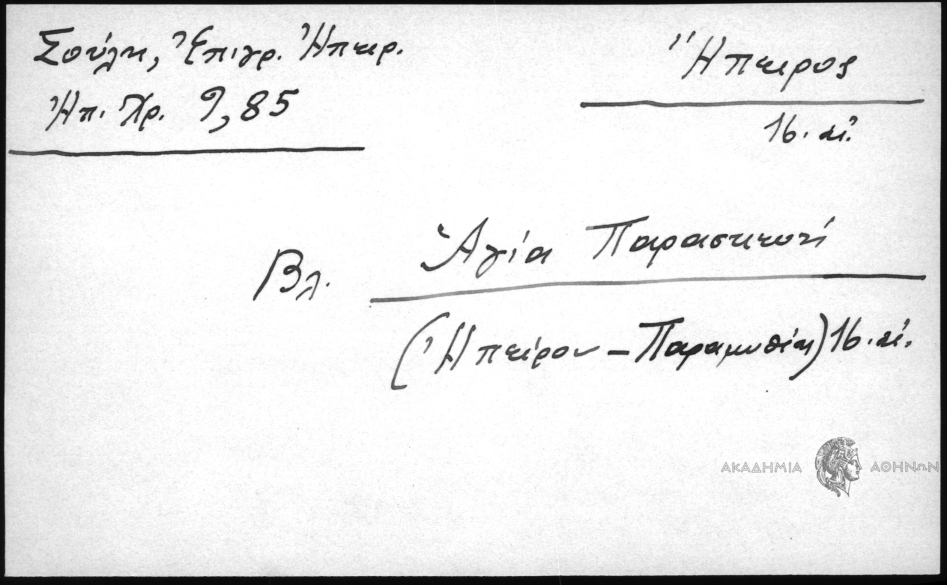 Σούλη, Ἐπιγρ. Ἠπειρ.
Ἠπ. Χρ. 9, 85
Ἤπειρος
16. αἰ.
Βλ. Ἁγία Παρασκευή
(Ἠπείρου - Παραμυθία) 16. αἰ.
ΑΚΑΔΗΜΙΑ ΑΘΗΝΩΝ